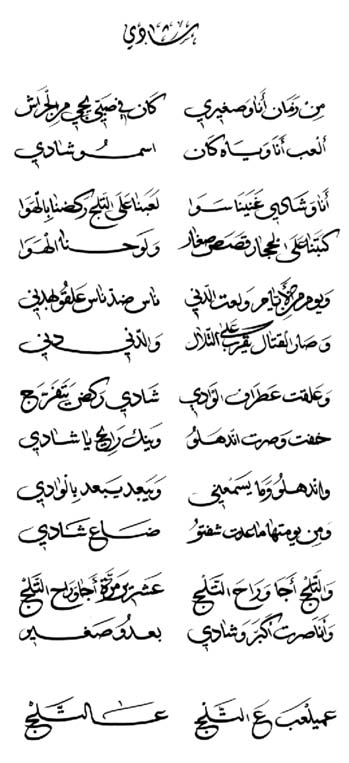 شادي
مِن زمان أنا وصغيري كان في صبي يجي من الحراش
ألعب أنا وياه كان اسمو شادي
أنا وشادي غنينا سوا لعبنا على التلج ركضنا بالهوا
كتبنا على الحجار قصص صغار ولوحنا الهوا
ويوم من الأيام ولعت الدني ناس ضد ناس علقو بهالدني
وصار القتال يقرب على التلال والدني دني
وعلقت عطراف الوادي شادي ركض يتفرج
خفت وصرت اندهلو وينك رايح يا شادي
واندهلو وما يسمعني ويبعد يبعد بالوادي
ومن يومتها ما عدت شفتو ضاع شادي
والتلج أجا وراح التلج عشرين مرة أجا وراح التلج
وأنا صرت أكبر وشادي بعدو صغير
عميلعب ع التلج عالتلج